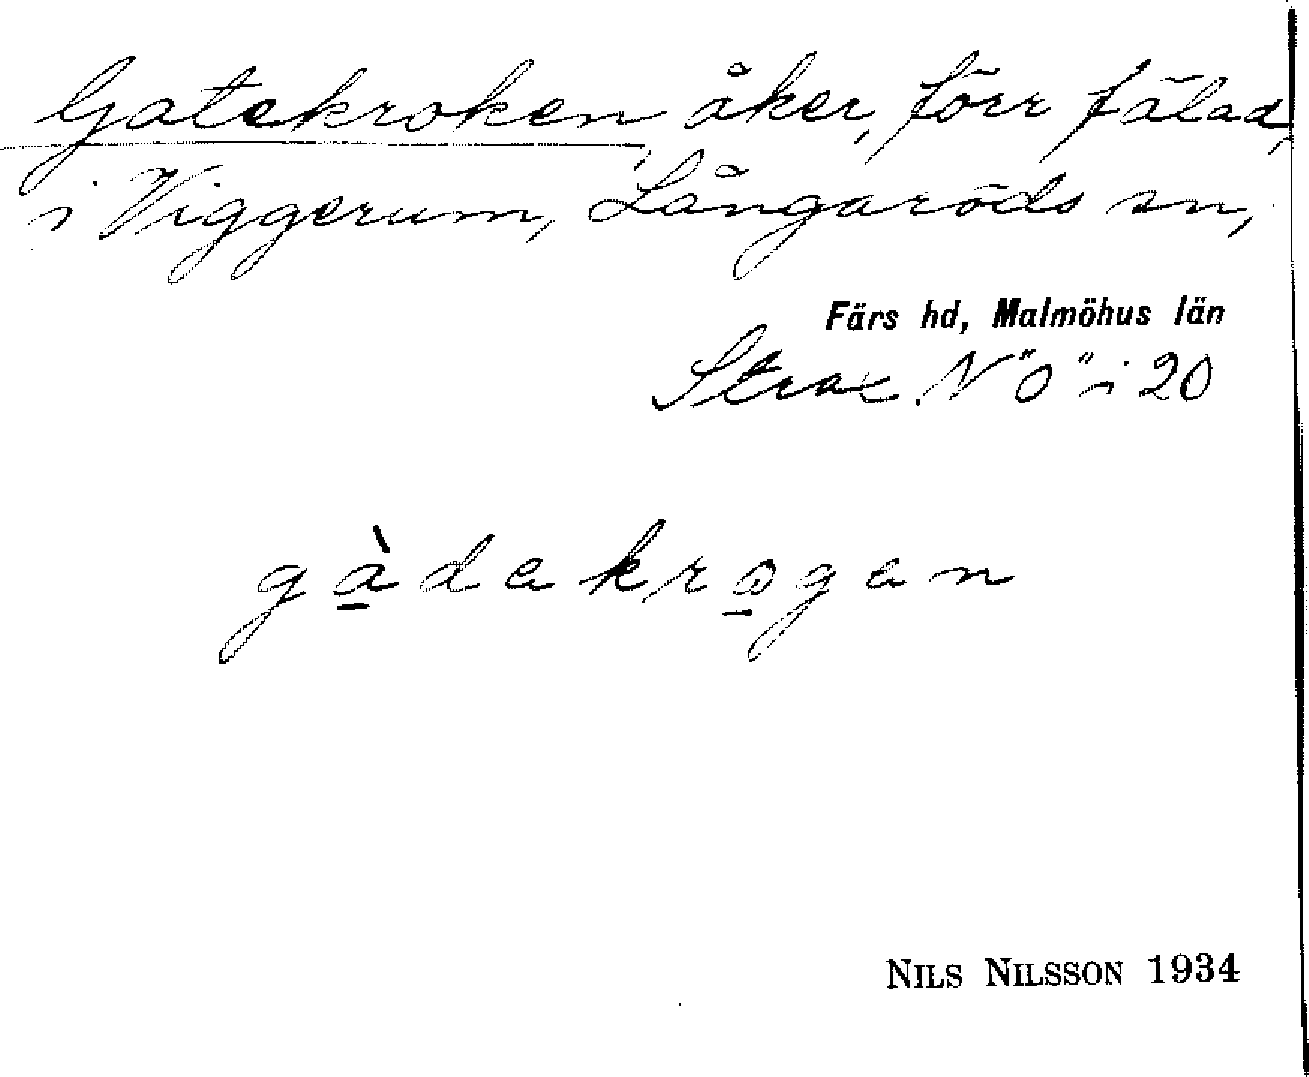 Gatekroken, åker, förr fälad,
i Viggerum, Långaröds sn,
Färs hd, Malmöhus län
Strax N "o" i 20
gàdakrogan
NILS NILSSON 1934